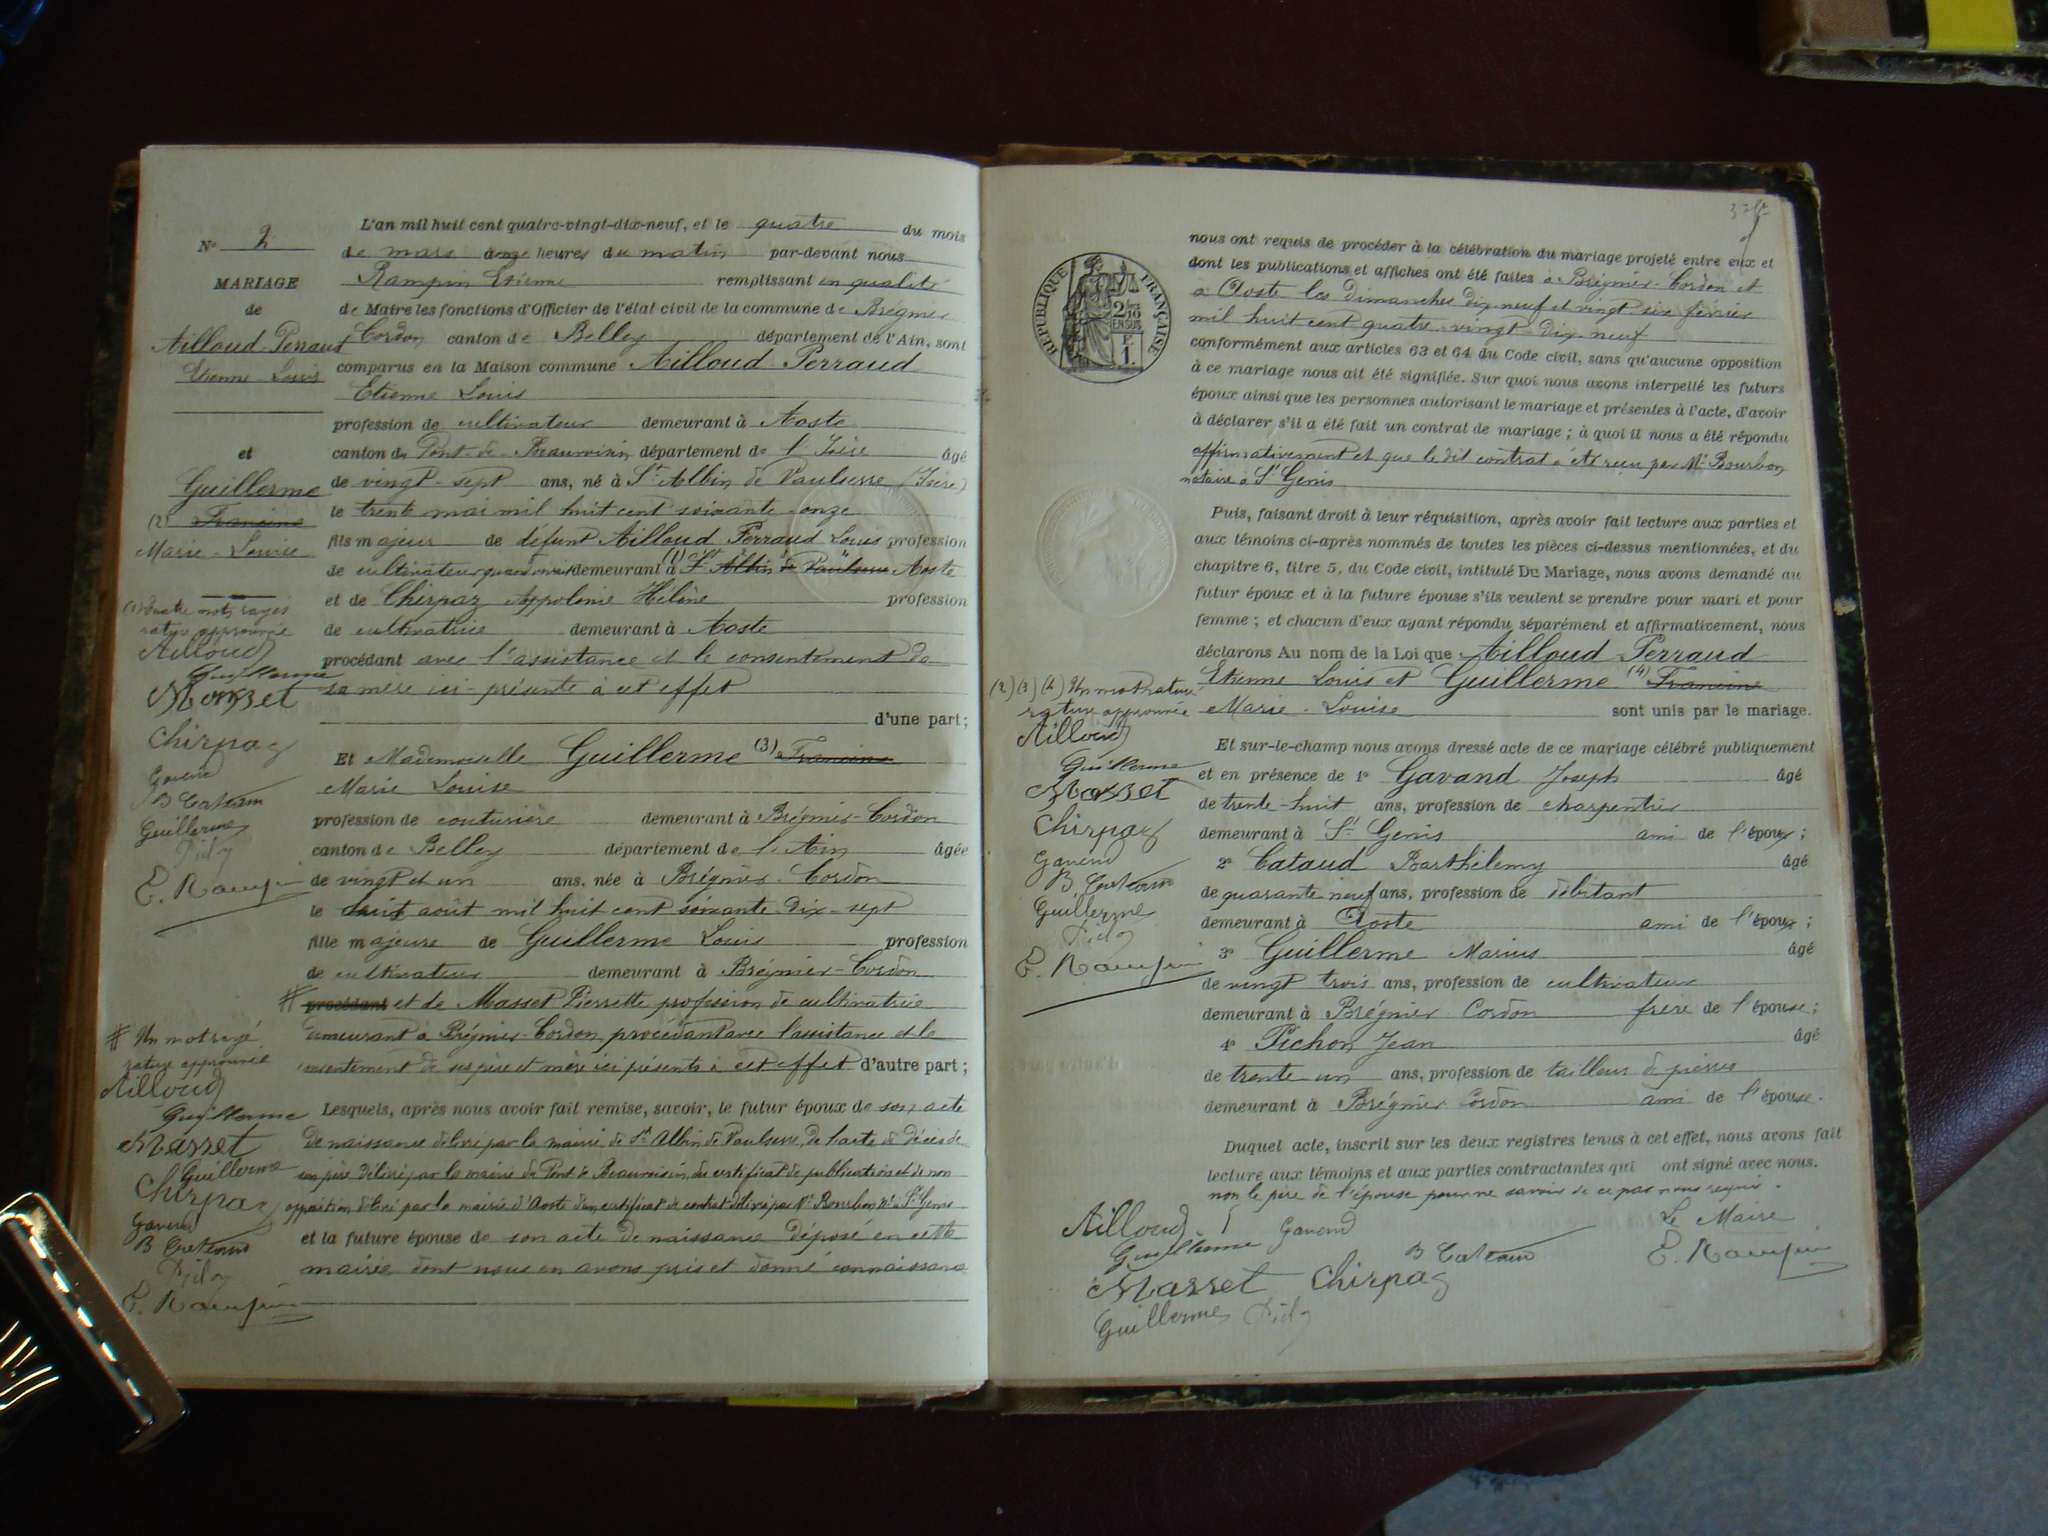 N° 2
MARIAGE
de
Ailloud-Perraud
Etienne Louis
et
Guillerme
(2) Francine
Marie-Louise
(1) Quatre mots rayés
rature approuvée
Ailloud
Guillerme
Masset
Chirpaz
Gavend
B Cataud
Guillerme
E. Rampin
# Un mot rayé
rature approuvée
Ailloud
Guillerme
Masset
Guillerme
Chirpaz
Gavend
B Cataud
E. Rampin
L'an mil huit cent quatre-vingt-dix-neuf, et le quatre du mois
de mars à onze heures du matin par-devant nous
Rampin Etienne remplissant en qualité
de Maire les fonctions d'Officier de l'état civil de la commune de Brégnier
Cordon canton de Belley département de l'Ain, sont
comparus en la Maison commune Ailloud-Perraud
Etienne Louis
profession de cultivateur demeurant à Aoste
canton de Pont-de-Beauvoisin département de l'Isère âgé
de vingt-sept ans, né à St Albin de Vaulserre (Isère)
le trente mai mil huit cent soixante-onze
fils majeur de défunt Ailloud Perraud Louis profession
de cultivateur quand vivait demeurant à (1) St Albin de Vaulserre Aoste
et de Chirpaz Appolonie Hélène profession
de cultivatrice demeurant à Aoste
procédant avec l'assistance et le consentement de
sa mère ici-présente à cet effet
d'une part;
Et Mademoiselle Guillerme (3) Francine
Marie Louise
profession de couturière demeurant à Brégnier-Cordon
canton de Belley département de l'Ain âgée
de vingt et un ans, née à Brégnier-Cordon
le huit août mil huit cent soixante-dix-sept
fille majeure de Guillerme Louis profession
de cultivateur demeurant à Brégnier-Cordon
# procédant et de Masset Pierrette profession de cultivatrice
demeurant à Brégnier-Cordon, procédant avec l'assistance et le
consentement de ses père et mère ici présents à cet effet d'autre part;
Lesquels, après nous avoir fait remise, savoir, le futur époux de son acte
de naissance délivré par la mairie de St Albin de Vaulserre, de l'acte de décès de
son père délivré par la mairie de Pont de Beauvoisin, du certificat de publication et de non
opposition délivré par la mairie d'Aoste d'un certificat de contrat délivré par Me Bourbon Nre à St Genis
et la future épouse de son acte de naissance déposé en cette
mairie dont nous en avons pris et donné connaissance
RÉPUBLIQUE FRANÇAISE
2/10 EN SUS
1F.
nous ont requis de procéder à la célébration du mariage projeté entre eux et
dont les publications et affiches ont été faites à Brégnier-Cordon et
à Aoste les dimanches dix-neuf et vingt-six février
mil huit cent quatre-vingt-dix-neuf
conformément aux articles 63 et 64 du Code civil, sans qu'aucune opposition
à ce mariage nous ait été signifiée. Sur quoi nous avons interpellé les futurs
époux ainsi que les personnes autorisant le mariage et présentes à l'acte, d'avoir
à déclarer s'il a été fait un contrat de mariage; à quoi il nous a été répondu
affirmativement et que le dit contrat a été reçu par Me Bourbon
notaire à St Genis
Puis, faisant droit à leur réquisition, après avoir fait lecture aux parties et
aux témoins ci-après nommés de toutes les pièces ci-dessus mentionnées, et du
chapitre 6, titre 5, du Code civil, intitulé Du Mariage, nous avons demandé au
futur époux et à la future épouse s'ils veulent se prendre pour mari et pour
femme; et chacun d'eux ayant répondu séparément et affirmativement, nous
déclarons Au nom de la Loi que Ailloud-Perraud
Etienne Louis et Guillerme (4) Francine
Marie-Louise sont unis par le mariage.
Et sur-le-champ nous avons dressé acte de ce mariage célébré publiquement
et en présence de 1° Gavand Joseph âgé
de trente-huit ans, profession de charpentier
demeurant à St Genis ami de l'époux;
2° Cataud Barthélemy âgé
de quarante neuf ans, profession de débitant
demeurant à Aoste ami de l'époux;
3° Guillerme Marius âgé
de vingt trois ans, profession de cultivateur
demeurant à Brégnier Cordon frère de l'épouse;
4° Pichon Jean âgé
de trente un ans, profession de tailleur de pierres
demeurant à Brégnier Cordon ami de l'épouse.
Duquel acte, inscrit sur les deux registres tenus à cet effet, nous avons fait
lecture aux témoins et aux parties contractantes qui ont signé avec nous.
non le père de l'épouse pour ne savoir de ce par nous requis.
(2) (3) (4) Un mot rature
rature approuvée
Ailloud
Guillerme
Masset
Chirpaz
Gavend
B. Cataud
Guillerme
E. Rampin
Ailloud Gavend Le Maire
Guillerme B Cataud E. Rampin
Masset Chirpaz
Guillerme